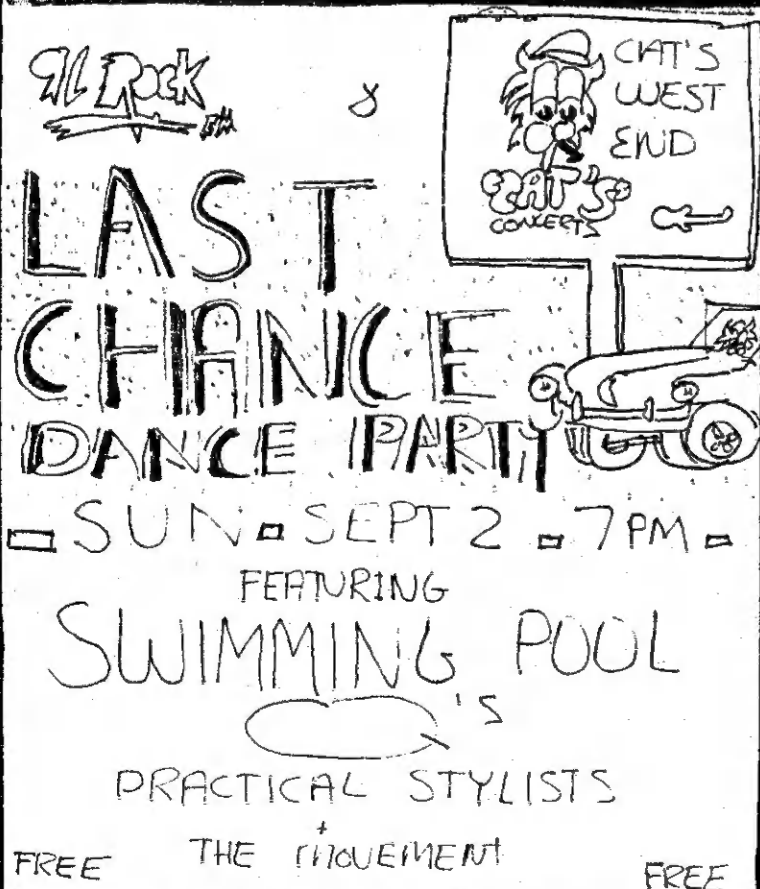 Rock
FM
&
CAT'S
WEST
END
CAT'S
CONCERTS
LAST
CHANCE
DANCE PARTY
SUN SEPT 2 7 PM
FEATURING
SWIMMING POOL
Q's
PRACTICAL STYLISTS
+
THE MOVEMENT
FREE
FREE